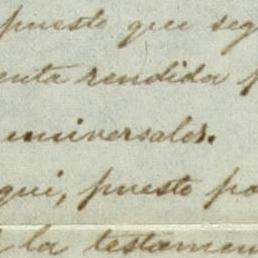 puesto que seg
enta rendida p
universales.
qui, puesto po
la testamen